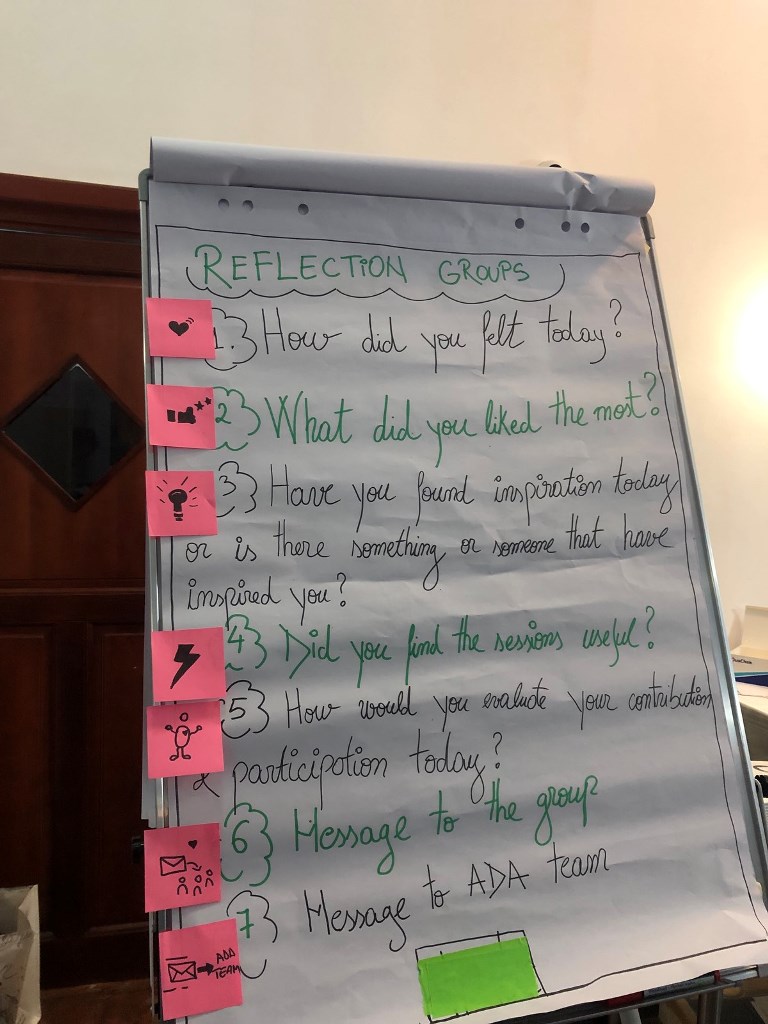 REFLECTION GROUPS
1. How did you felt today?
2 What did you liked the most?
3 Have you found inspiration today
or is there something or someone that have
inspired you?
4 Did you find the sessions useful?
5 How would you evaluate your contribution
& participation today?
6 Message to the group
7 Message to ADA team
ADA
TEAM